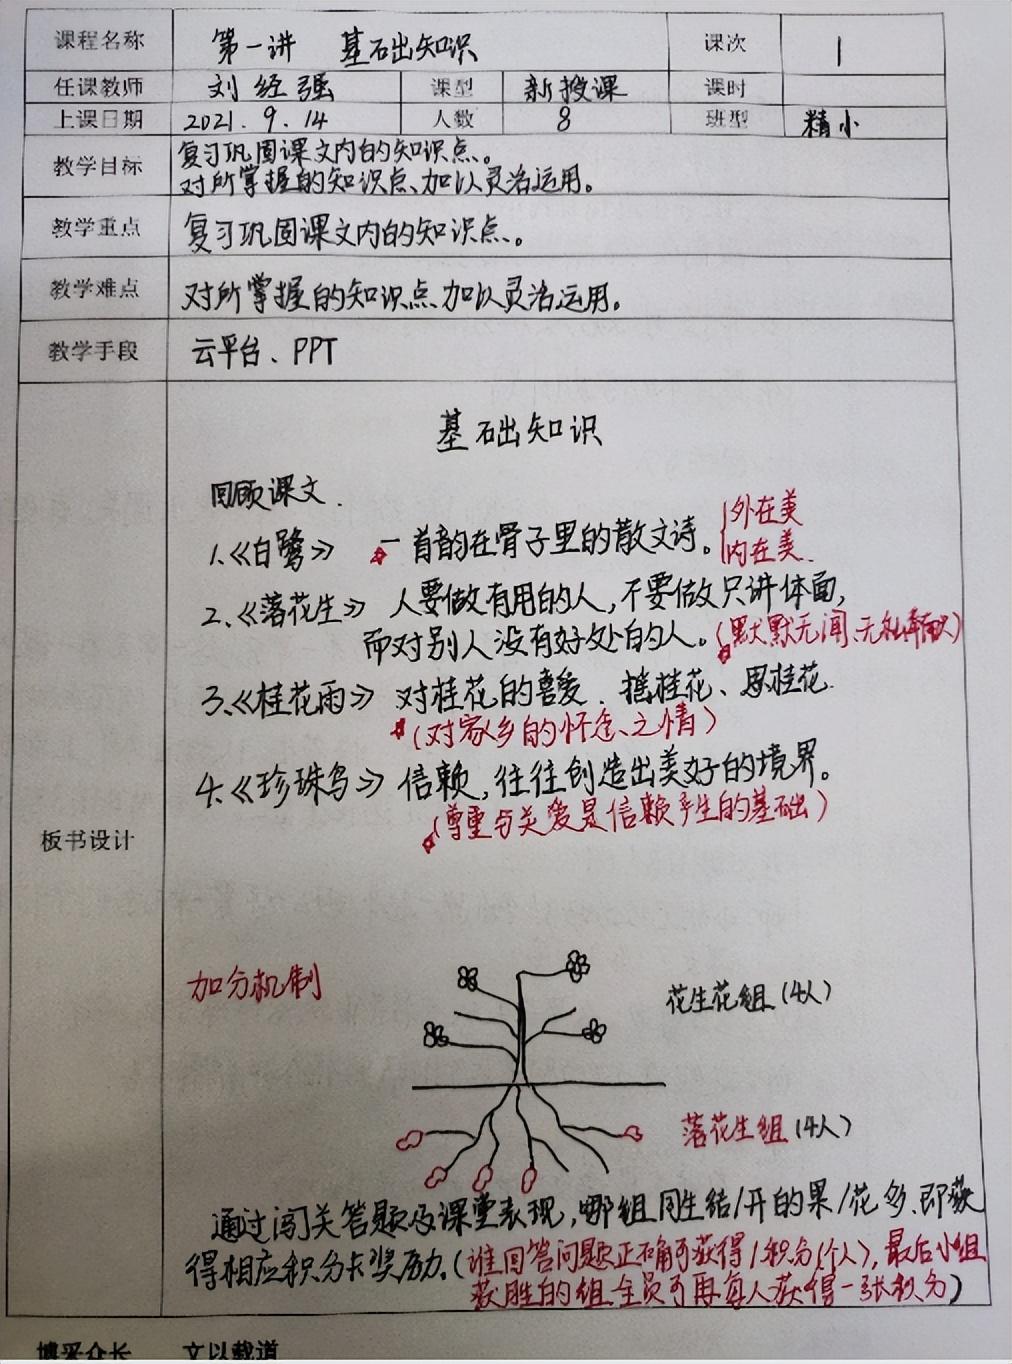 课程名称 第一讲 基础出知识 课次 1
任课教师 刘经强 课型 新授课 课时
上课日期 2021.9.14 人数 8 班型 精小
教学目标 复习巩固课文内的知识点。
对所掌握的知识点、加以灵活运用。
教学重点 复习巩固课文内的知识点。
教学难点 对所掌握的知识点加以灵活运用。
教学手段 云平台、PPT
板书设计
基础知识
回顾课文.
1.《白鹭》 一首韵在骨子里的散文诗。 外在美
内在美.
2.《落花生》 人要做有用的人,不要做只讲体面,
而对别人没有好处的人。(默默无闻、无私奉献)
3.《桂花雨》 对桂花的喜爱.摇桂花、思桂花.
(对家乡的怀念之情)
4.《珍珠鸟》 信赖,往往创造出美好的境界。
(尊重与关爱是信赖产生的基础)
加分机制
花生花组(4人)
落花生组(4人)
通过闯关答题及课堂表现,哪组同生结/开的果/花多.即获
得相应积分卡奖励。(谁回答问题正确可获得1积分(个人),最后小组
获胜的组全员可再每人获得一张积分)
博采众长 文以载道